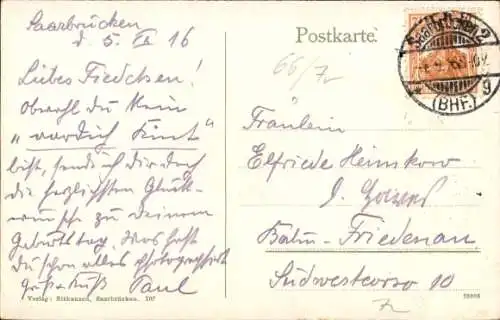 Saarbrücken
d. 5. IX 16
Liebes Fiedchen!
Obwohl du kein
" artich Kint "
bist, send ich dir doch
die herzlichsten Glück-
wünsche zu deinem
Geburtstag. Was hast
du schon alles photographiert
Gruß + Kuß Paul
Verlag: Rithausen, Saarbrücken. 707
Postkarte.
66/
Saarbrücken 2
(BHF.)
g
Fräulein
Elfriede Heinskow
Berlin-Friedenau
Südwestcorso 10